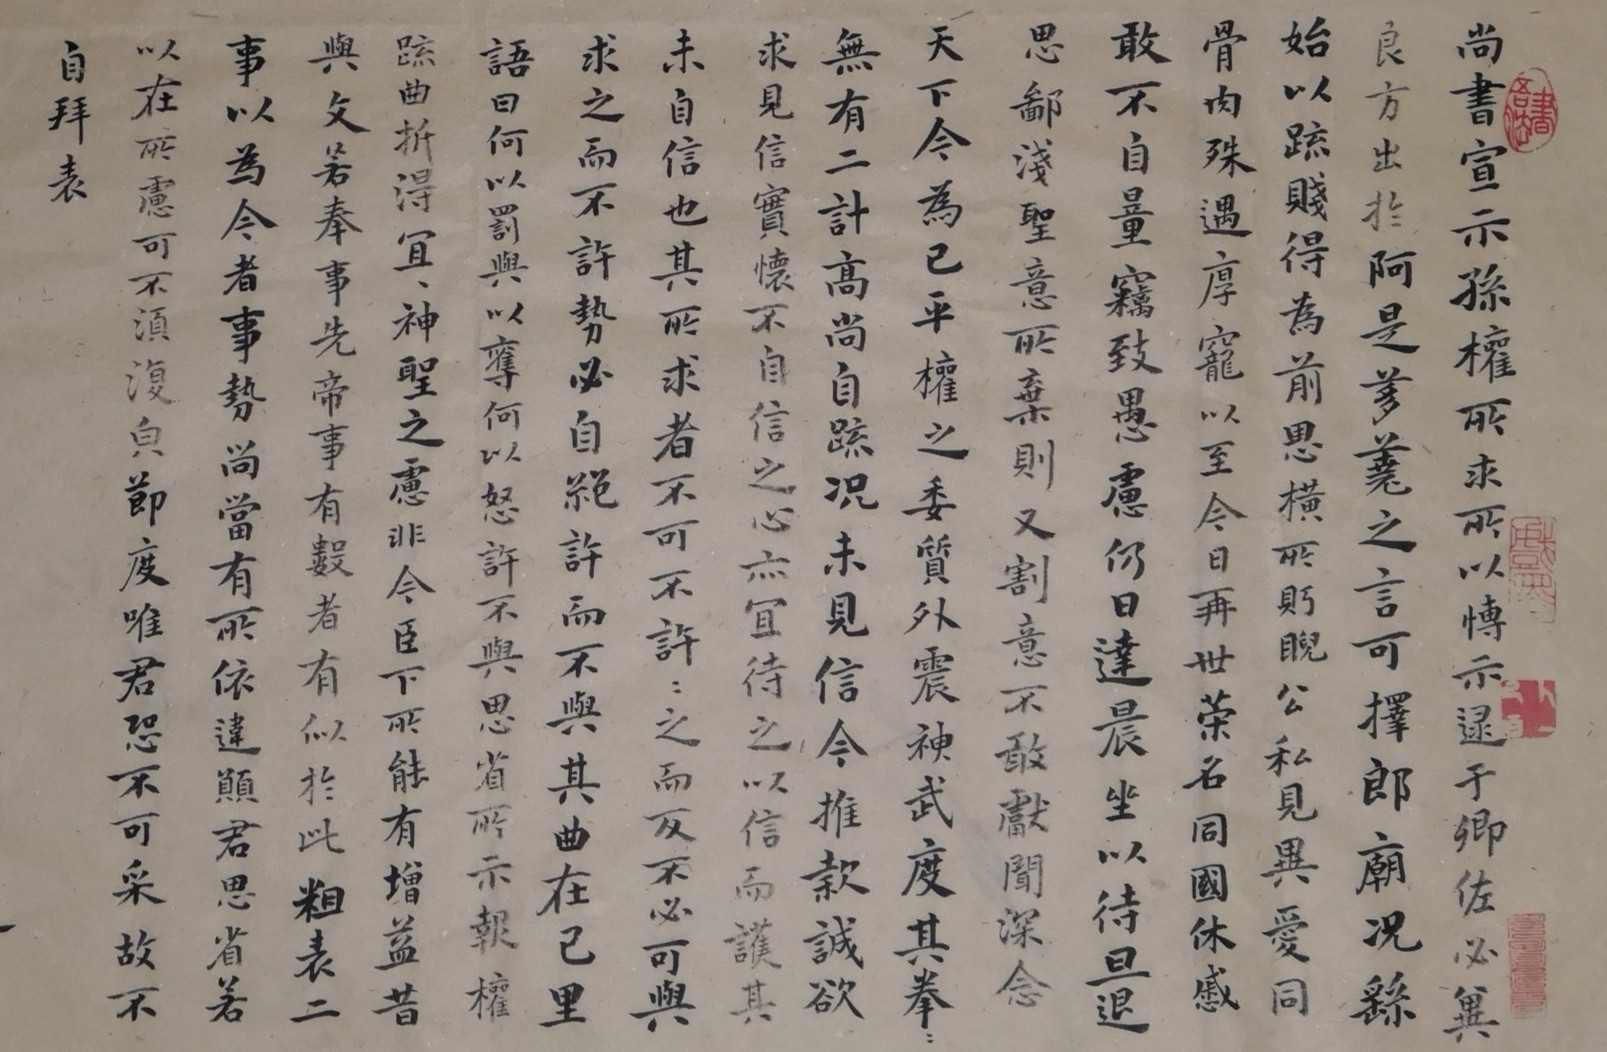 尚書宣示孫權所求所以博示逮于卿佐必冀
良方出於阿是芻蕘之言可擇郎廟況繇
始以疏賤得為前恩橫所眄睨公私見異愛同
骨肉殊遇厚寵以至今日再世榮名同國休慼
敢不自量竊致愚慮仍日達晨坐以待旦退
思鄙淺聖意所棄則又割意不敢獻聞深念
天下今為已平權之委質外震神武度其拳〻
無有二計高尚自疏況未見信今推款誠欲
求見信實懷不自信之心亦宜待之以信而護其
未自信也其所求者不可不許〻之而反不必可與
求之而不許勢必自絕許而不與其曲在己里
語曰何以罰與以奪何以怒許不與思省所示報權
疏曲折得宜〻神聖之慮非今臣下所能有增益昔
與文若奉事先帝事有數者有似於此粗表二
事以為今者事勢尚當有所依違願君思省若
以在所慮可不須復皃節度唯君恐不可采故不
自拜表